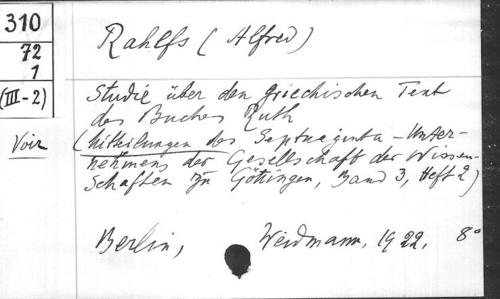 310
72
1
(III-2)
Voir
Rahlfs (Alfred)
Studie über den griechischen Text
des Buches Ruth
(Mitteilungen des Septuaginta-Unter-
nehmens der Gesellschaft der Wissen-
schaften zu Göttingen, Band 3, Heft 2)
Berlin, Weidmann, 1922, 8°